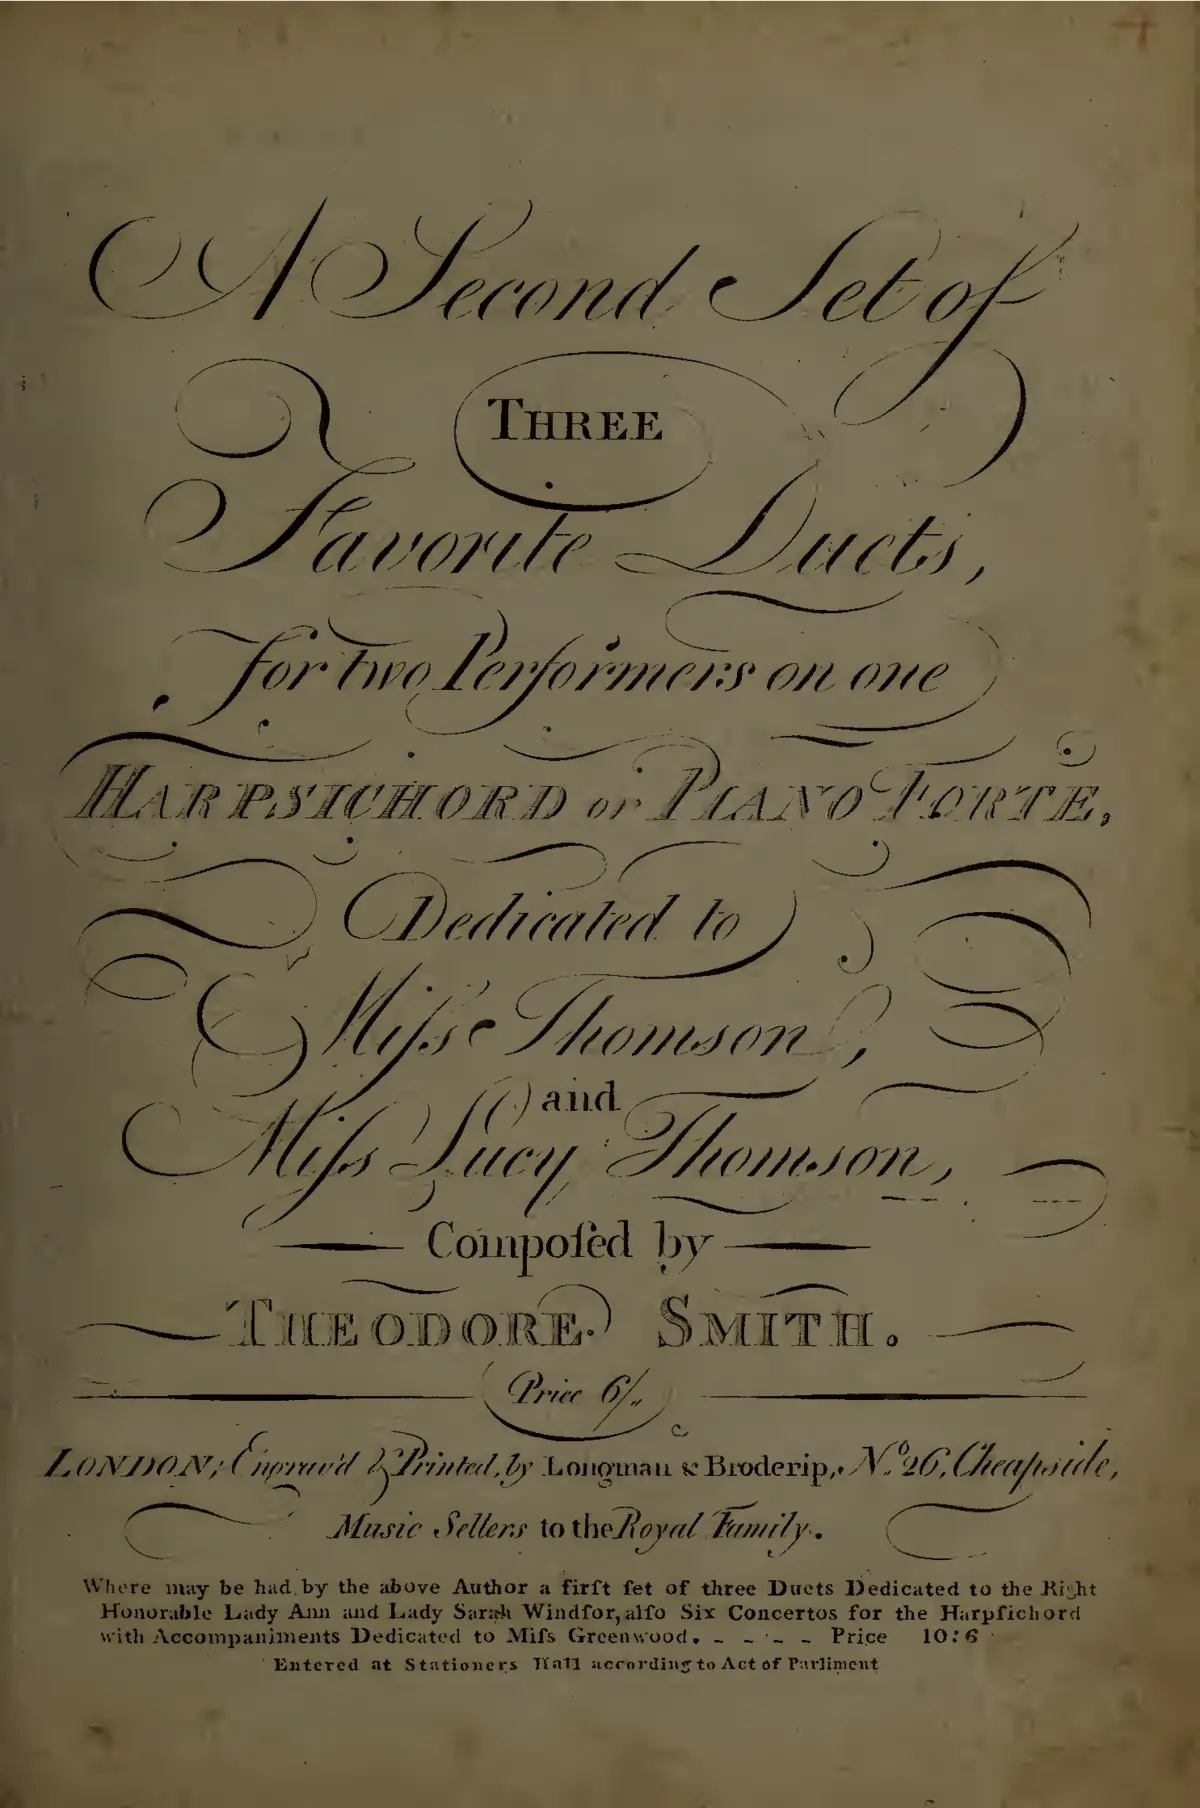 A Second Set of
THREE
Favorite Duets,
for two Performers on one
HARPSICHORD or PIANO FORTE,
Dedicated to
Miſs Thomson,
and
Miſs Lucy Thomson,
Compoſed by
THEODORE SMITH.
Price 6/,,
LONDON; Engrav'd & Printed, by Longman & Broderip, No. 26, Cheapside,
Music Sellers to the Royal Family.
Where may be had by the above Author a firſt ſet of three Duets Dedicated to the Right
Honorable Lady Ann and Lady Sarah Windſor, alſo Six Concertos for the Harpſichord
with Accompaniments Dedicated to Miſs Greenwood. - - - - Price 10:6
Entered at Stationers Hall according to Act of Parliment